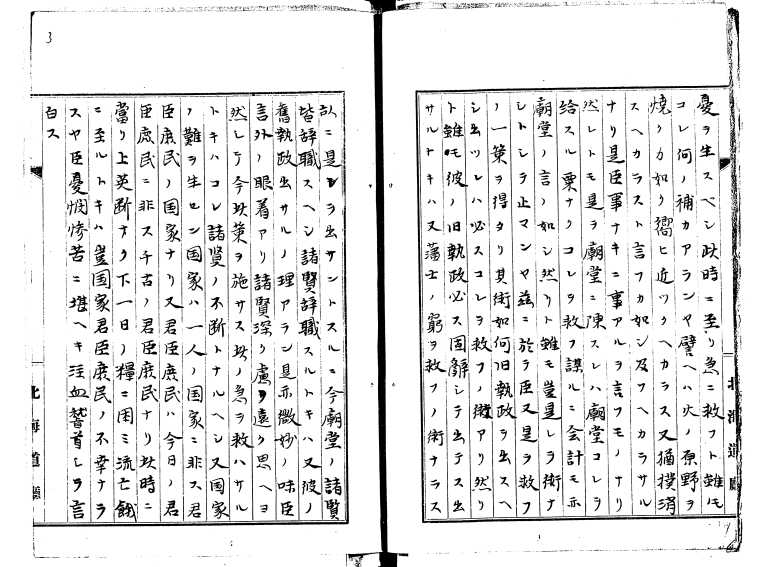 憂ヲ生スベシ此時ニ至リ急ニ救フト雖モ
コレ何ノ補カアランヤ譬ヘハ火ノ原野ヲ
焼クカ如ク嚮ヒ近ツクヘカラス又猶撲滅
スヘカラスト言フカ如シ及フヘカラサル
ナリ是臣事ナキニ事アルヲ言フモノナリ
然レトモ是ヲ廟堂ニ陳スレハ廟堂コレヲ
給スル粟ナクコレヲ救フ謀ルニ会計モ亦
廟堂ノ言ノ如シ然リト雖モ豈是レヲ術ナ
シトシテ止マンヤ茲ニ於テ臣又是ヲ救フ
ノ一策ヲ得タリ其術如何旧執政ヲ出スヘ
シ出ツレハ必スコレヲ救フノ術アリ然リ
ト雖モ彼ノ旧執政必ス固辞シテ出テス出
サルトキハ又藩士ノ窮ヲ救フノ術ナラス
故ニ是レヲ出サントスルニ今廟堂ノ諸賢
皆辞職スヘシ諸賢辞職スルトキハ又彼ノ
舊執政出サルノ理アラン是亦微妙ノ味臣
言外ノ眼着アリ諸賢深ク慮ヲ遠ク思ヘヨ
然レテ今此策ヲ施サス此ノ急ヲ救ハサル
トキハコレ諸賢ノ不断トナルヘシ又国家
ノ難ヲ生セン国家ハ一人ノ国家ニ非ス君
臣庶民ノ国家ナリ又君臣庶民ハ今日ノ君
臣庶民ニ非ス千古ノ君臣庶民ナリ此時ニ
當リ上英断ナク下一日ノ糧ニ困ミ流亡餓
ニ至ルトキハ豈国家君臣庶民ノ不幸ナラ
スヤ臣憂惻惨苦ニ堪ヘキ泣血稽首シテ言
白ス
北海道廳
北海道廳
3